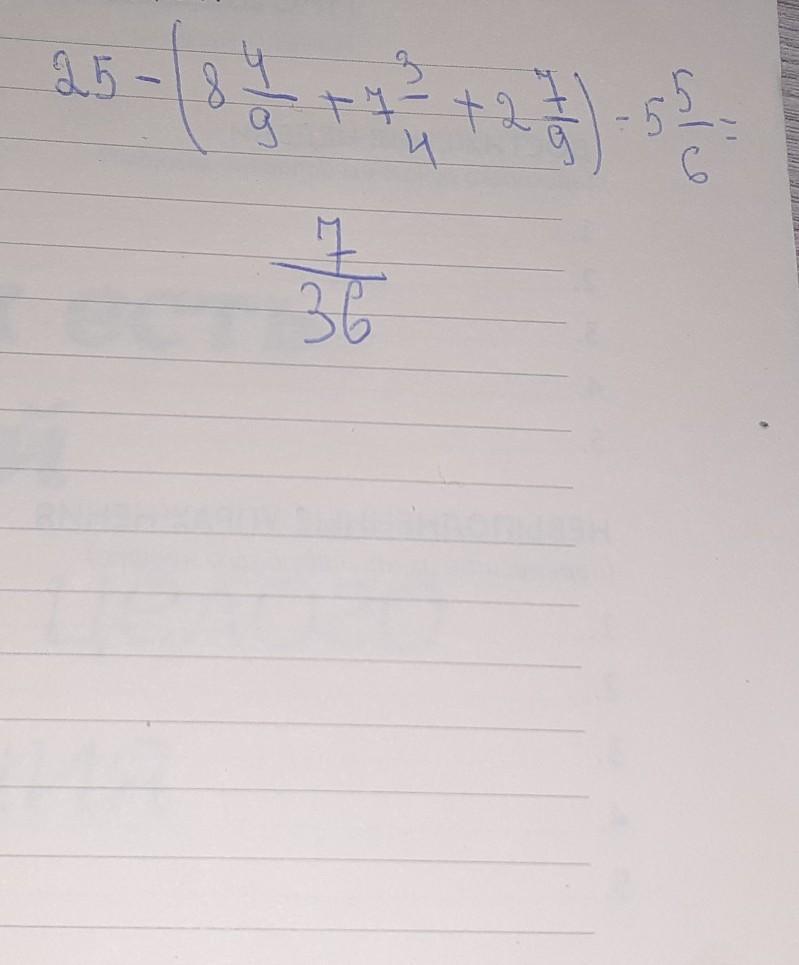 25 - (8 4/9 + 7 3/4 + 2 7/9) - 5 5/6 =
7/36